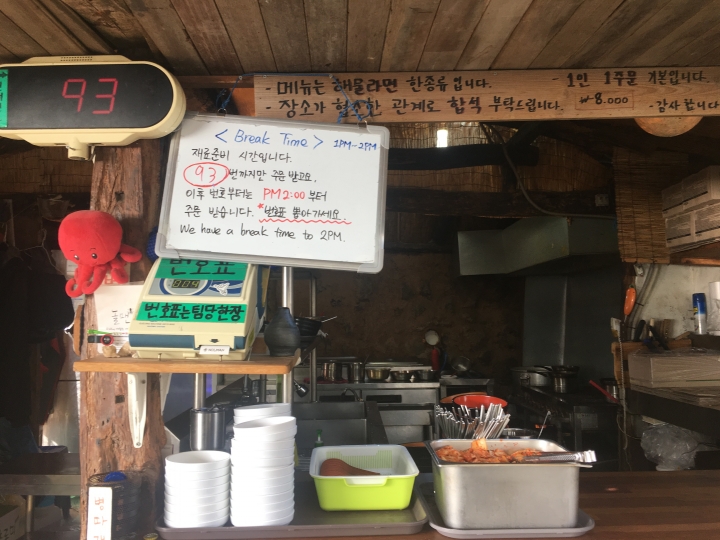 93
- 메뉴는 해물라면 한종류 입니다.
- 1인 1주문 기본입니다.
- 장소가 협소한 관계로 합석 부탁드립니다.
₩8.000
- 감사합니다
< Break Time > 1PM-2PM
재료준비 시간입니다.
93 번까지만 주문 받고요,
이후 번호부터는 PM2:00부터
주문 받습니다. *번호표 뽑아가세요.
We have a break time to 2PM.
번호표
번호표는팀당한장